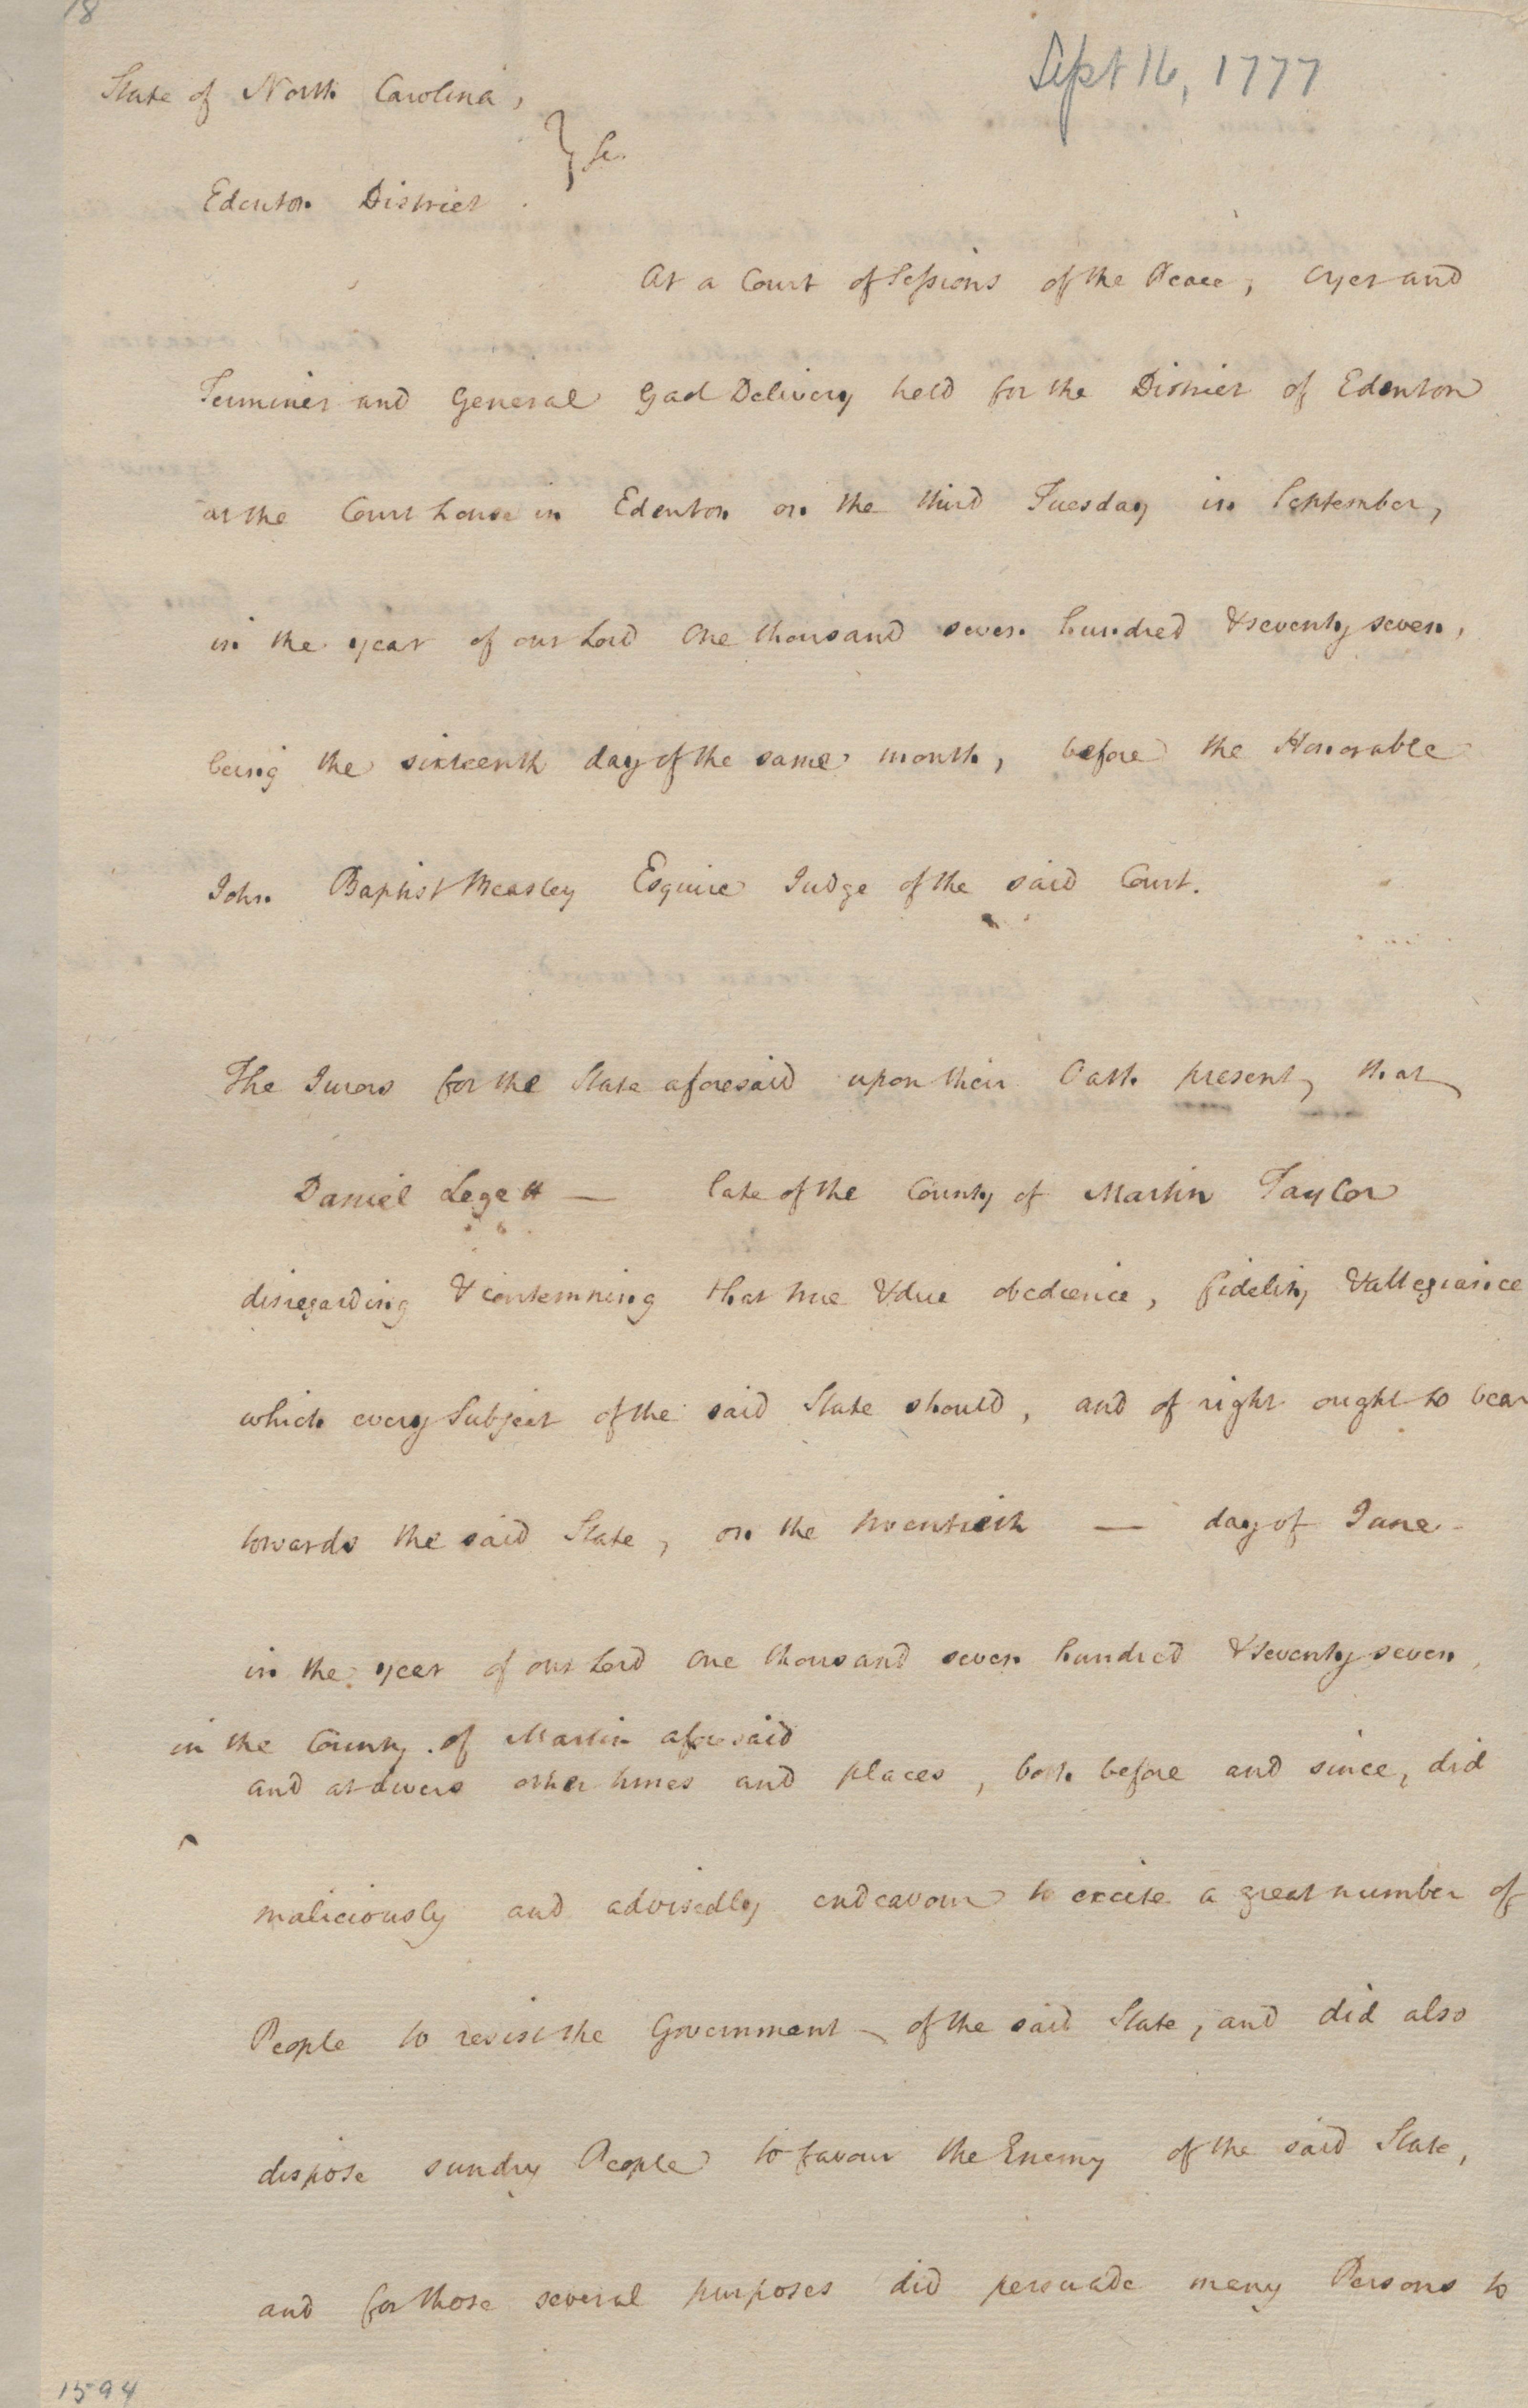 18
Sept 16, 1777
State of North Carolina,
} Sc.
Edenton District.
At a Court of Sessions of the Peace, Oyer and
Terminer and General Gaol Delivery held for the District of Edenton
at the Court house in Edenton on the third Tuesday in September,
in the year of our Lord One thousand seven hundred & seventy seven,
being the sixteenth day of the same month, before the Honorable
John Baptist Beasley Esquire Judge of the said Court.
The Jurors for the State aforesaid upon their Oath present, that
Daniel Legett — late of the County of Martin Taylor
disregarding & contemning that true & due obedience, fidelity & allegiance
which every Subject of the said State should, and of right ought to bear
towards the said State, on the twentieth — day of June
in the year of our Lord One thousand seven hundred & seventy seven,
in the County of Martin aforesaid
and at divers other times and places, both before and since, did
^
maliciously and advisedly endeavour to excite a great number of
People to resist the Government of the said State, and did also
dispose sundry People to favour the Enemy of the said State,
and for those several purposes did persuade many Persons to
1594